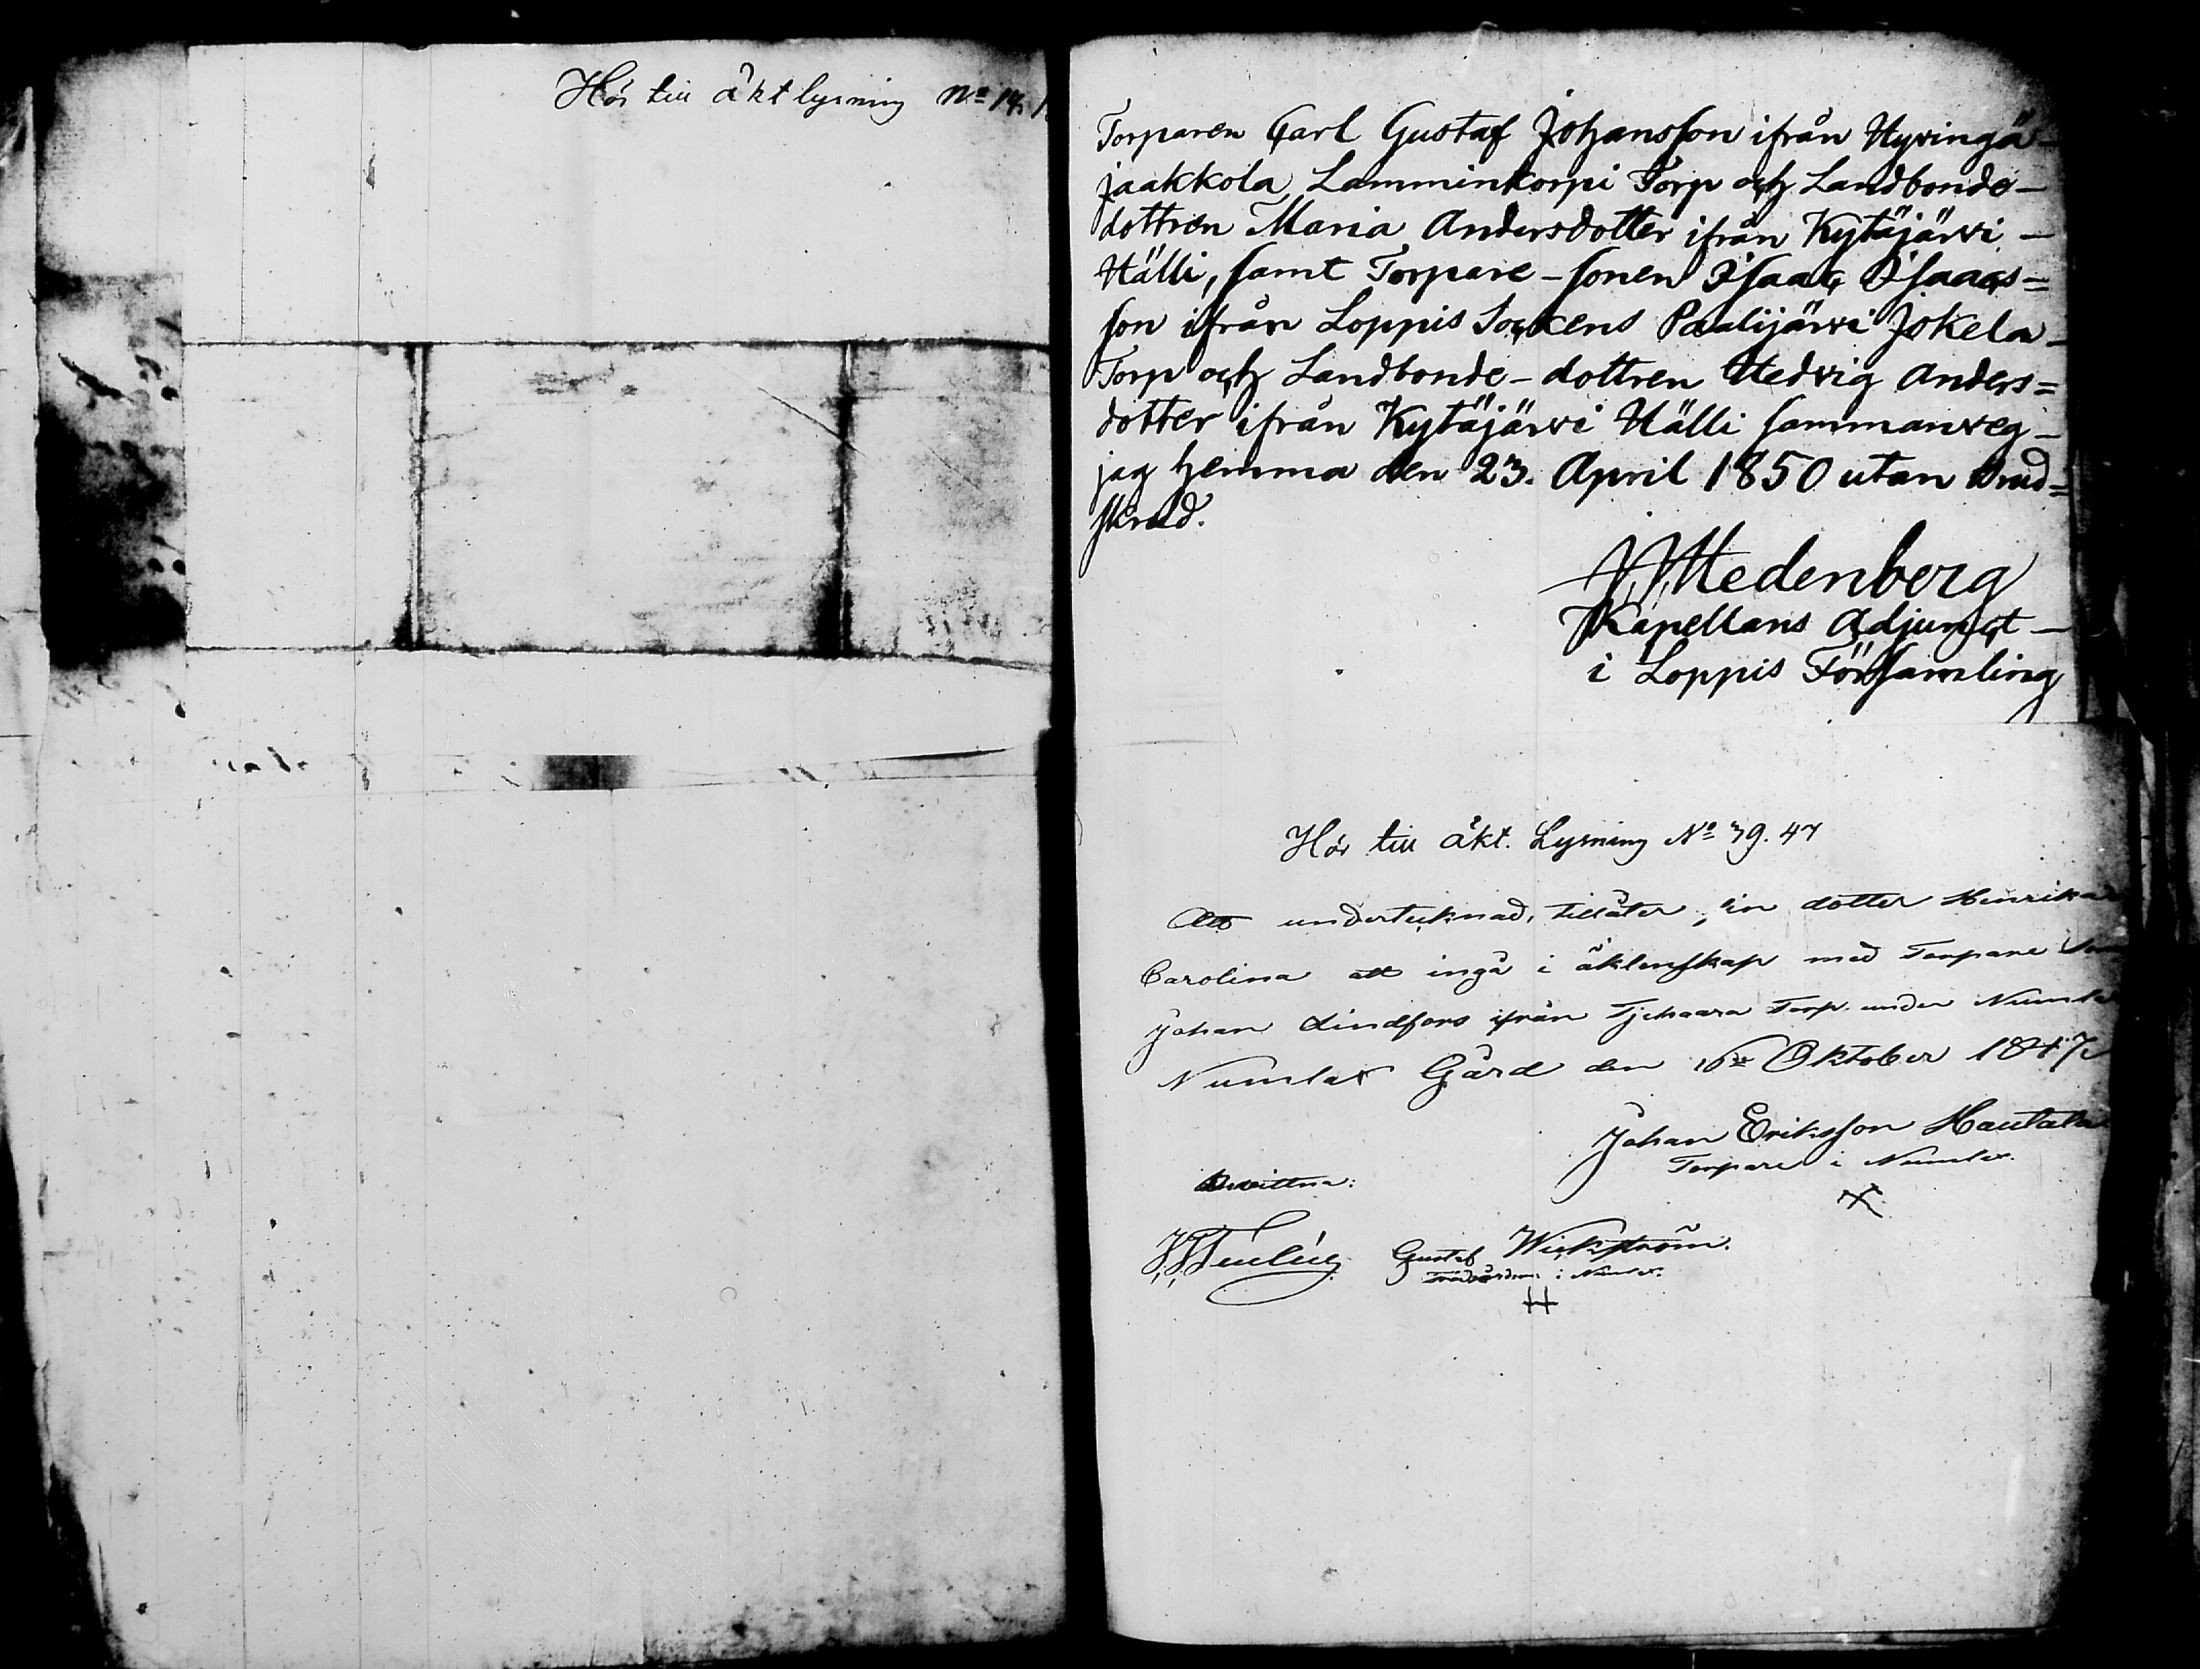 Hör till äkt lysning No 17.
Torparen Carl Gustaf Johansson ifrån Hyvingä
Jaakkola Lamminkorpi Torp och Landbonde-
dottren Maria Andersdotter ifrån Kytäjärvi
Hälli, samt Torpare-sonen Isaac Isaacs=
son ifrån Loppis Sockens Paalijärvi Jokela
Torp och Landbonde-dottren Hedvig Anders=
dotter ifrån Kytäjärvi Hälli sammanveg
jag hemma den 23. April 1850 utan Brud=
skrud.
Hedenberg
Kapellans Adjunct
i Loppis Församling
Hör till äkt. Lysning No 39. 47
Att undertecknad, tillåter, sin dotter Henrika
Carolina att ingå i äktenskap med Torpare Son
Johan Lindfors ifrån Torp under Numla
Numlax Gård den 16de Oktober 1847
Johan Eriksson Hautala
Torpare i Numlax.
Bevittna:
Gustaf Wickström.
i Numlax.